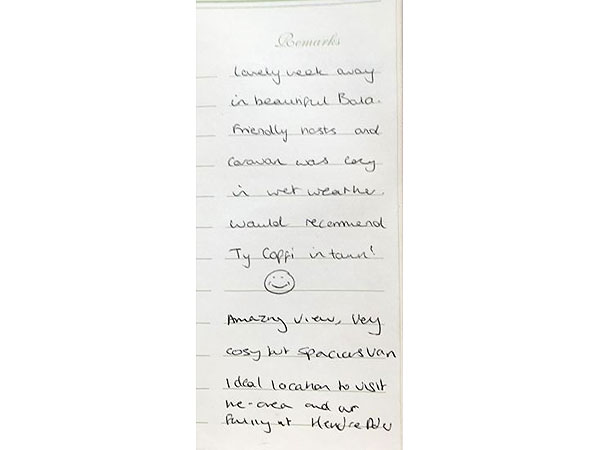 Remarks
lovely week away
in beautiful Bala.
Friendly hosts and
Caravan was cosy
in wet weather.
would recommend
Ty Coffi in town!
Amazing view, Very
cosy but spacious Van
Ideal location to visit
the area and our
family at Hendre